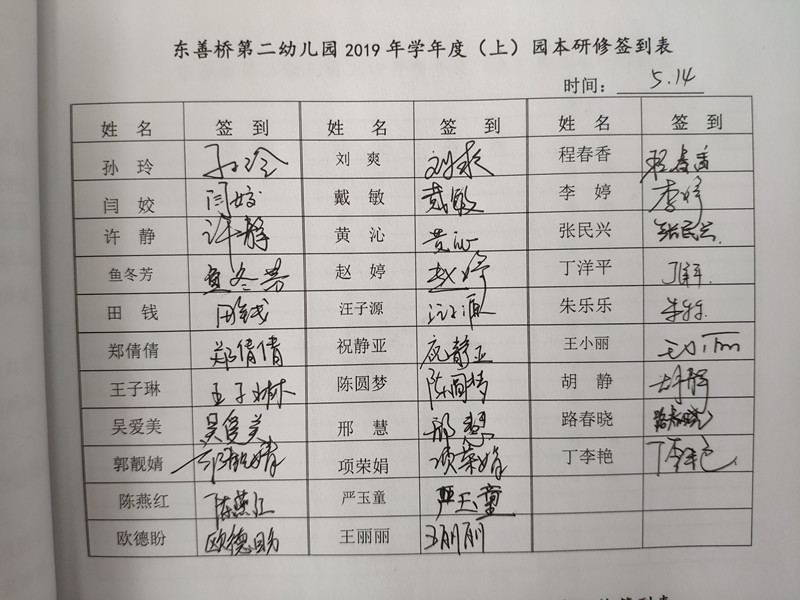 东善桥第二幼儿园 2019 年学年度（上）园本研修签到表
时间：5.14
姓 名 签 到 姓 名 签 到 姓 名 签 到
孙 玲 孙玲 刘 爽 刘爽 程春香 程春香
闫 姣 闫姣 戴 敏 戴敏 李 婷 李婷
许 静 许静 黄 沁 黄沁 张民兴 张民兴
鱼冬芳 鱼冬芳 赵 婷 赵婷 丁洋平 丁洋平
田 钱 田钱 汪子源 汪子源 朱乐乐 朱乐乐
郑倩倩 郑倩倩 祝静亚 祝静亚 王小丽 王小丽
王子琳 王子琳 陈圆梦 陈圆梦 胡 静 胡静
吴爱美 吴爱美 邢 慧 邢慧 路春晓 路春晓
郭靓婧 郭靓婧 项荣娟 项荣娟 丁李艳 丁李艳
陈燕红 陈燕红 严玉童 严玉童
欧德盼 欧德盼 王丽丽 王丽丽